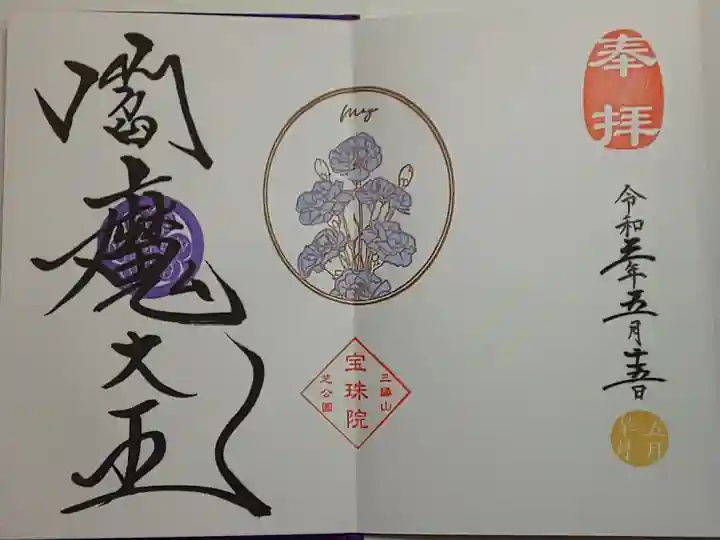 奉拝
令和三年五月十五日
五月
皐月
May
三縁山
宝珠院
芝公園
閻魔大王